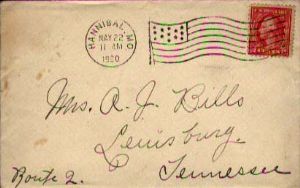 HANNIBAL, MO.
MAY 22
11 AM
1920
Mrs. R. J. Bills
Lewisburg,
Route 2. Tennessee